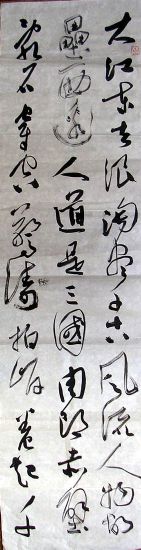 大江东去浪淘尽千古风流人物故
壘西邊人道是三國周郎赤壁
亂石穿空驚濤拍岸卷起千